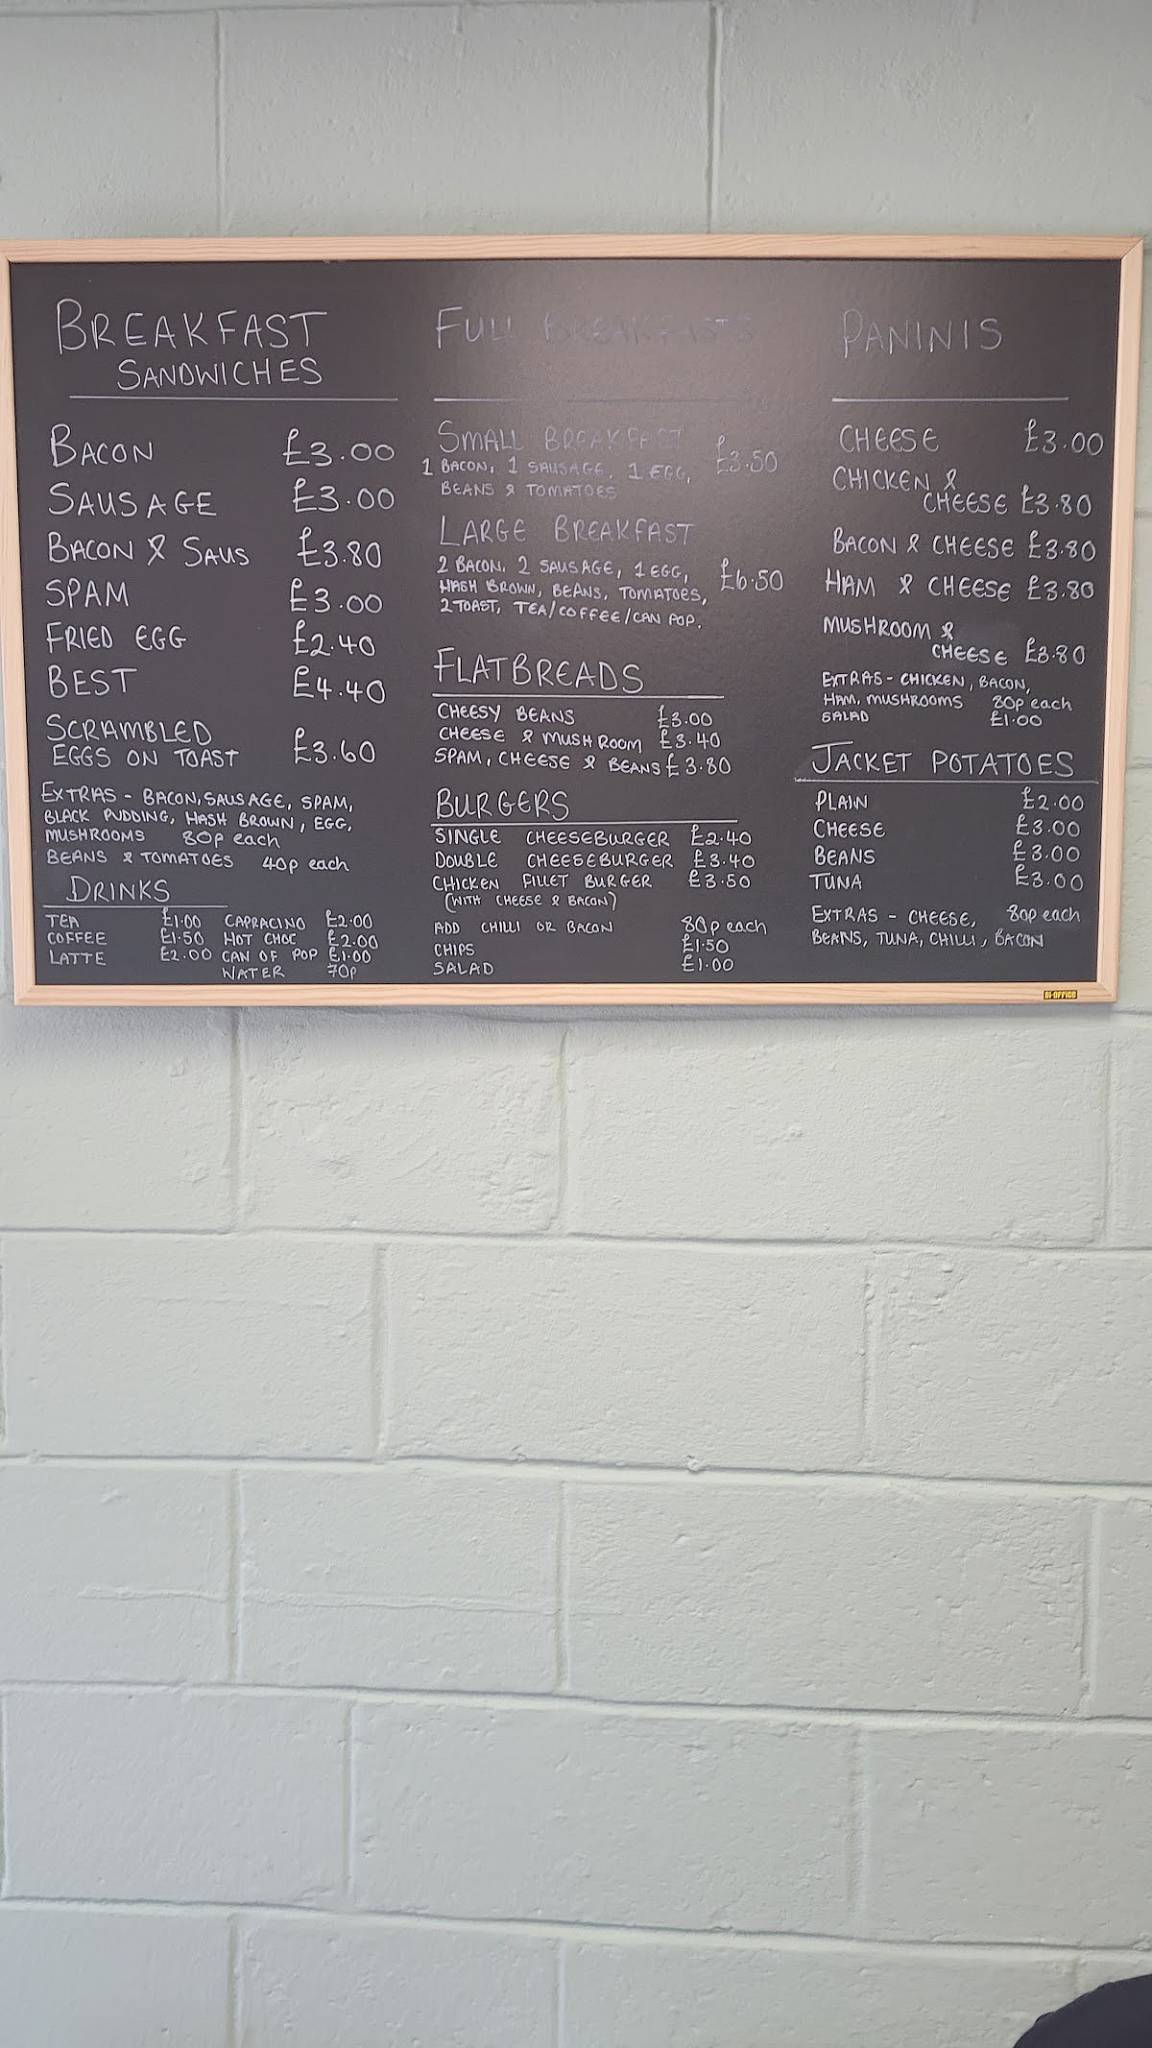 BREAKFAST
SANDWICHES
BACON £3.00
SAUSAGE £3.00
BACON & SAUS £3.80
SPAM £3.00
FRIED EGG £2.40
BEST £4.40
SCRAMBLED
EGGS ON TOAST £3.60
EXTRAS - BACON, SAUSAGE, SPAM,
BLACK PUDDING, HASH BROWN, EGG,
MUSHROOMS 80p each
BEANS & TOMATOES 40p each
DRINKS
TEA £1.00 CAPRACINO £2.00
COFFEE £1.50 HOT CHOC £2.00
LATTE £2.00 CAN OF POP £1.00
WATER 70p
FULL BREAKFASTS
SMALL BREAKFAST
1 BACON, 1 SAUSAGE, 1 EGG, £3.50
BEANS & TOMATOES
LARGE BREAKFAST
2 BACON, 2 SAUSAGE, 1 EGG, £6.50
HASH BROWN, BEANS, TOMATOES,
2 TOAST, TEA/COFFEE/CAN POP.
FLATBREADS
CHEESY BEANS £3.00
CHEESE & MUSHROOM £3.40
SPAM, CHEESE & BEANS £3.80
BURGERS
SINGLE CHEESEBURGER £2.40
DOUBLE CHEESEBURGER £3.40
CHICKEN FILLET BURGER £3.50
(WITH CHEESE & BACON)
ADD CHILLI OR BACON 80p each
CHIPS £1.50
SALAD £1.00
PANINIS
CHEESE £3.00
CHICKEN &
CHEESE £3.80
BACON & CHEESE £3.80
HAM & CHEESE £3.80
MUSHROOM &
CHEESE £3.80
EXTRAS - CHICKEN, BACON,
HAM, MUSHROOMS 80p each
SALAD £1.00
JACKET POTATOES
PLAIN £2.00
CHEESE £3.00
BEANS £3.00
TUNA £3.00
EXTRAS - CHEESE, 80p each
BEANS, TUNA, CHILLI, BACON
BI-OFFICE